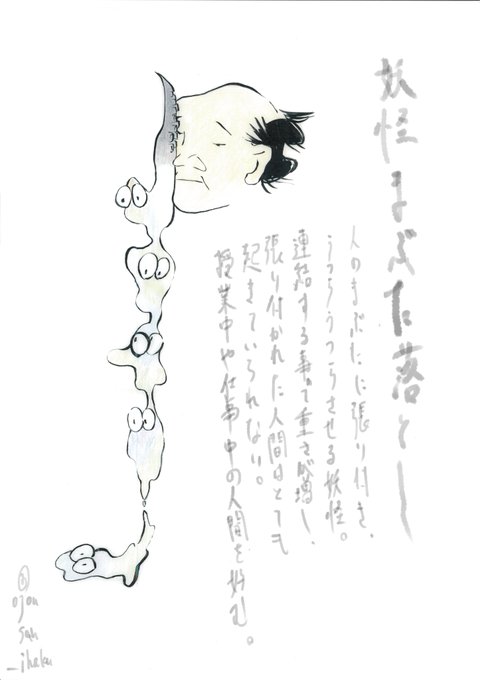 妖怪まぶた落とし
人のまぶたに張り付き、
うつらうつらさせる妖怪。
連結する事で重さが増し、
張り付かれた人間はとても
起きていられない。
授業中や仕事中の人間を好む。
ojou
san
_ihaku